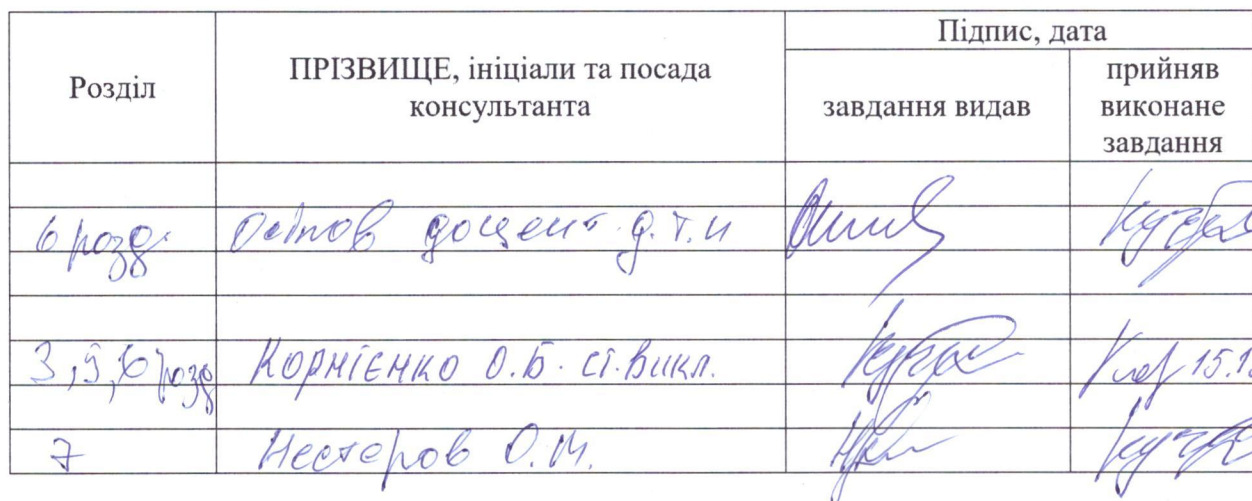 Розділ
ПРІЗВИЩЕ, ініціали та посада
консультанта
Підпис, дата
завдання видав
прийняв
виконане
завдання
6 розд. доцент д.т.н
3,5,6 розд Корнієнко О.Б. ст.викл. 15.1
7 Нестеров О.М.